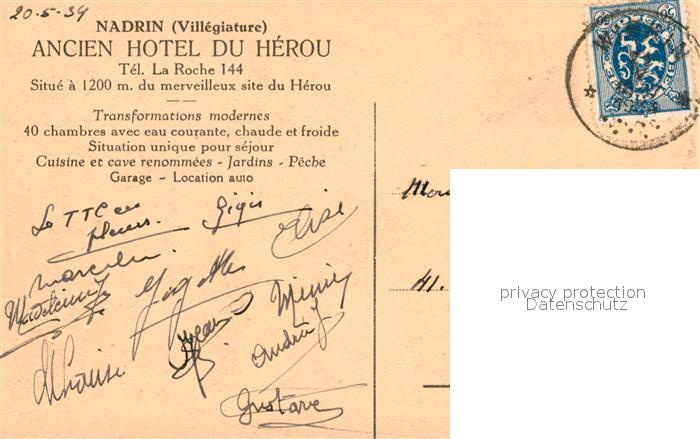 20-5-34
NADRIN (Villégiature)
ANCIEN HOTEL DU HÉROU
Tél. La Roche 144
Situé à 1200 m. du merveilleux site du Hérou
Transformations modernes
40 chambres avec eau courante, chaude et froide
Situation unique pour séjour
Cuisine et cave renommées - Jardins - Pêche
Garage - Location auto
Le TTC en
pleurs. Gigis
Elise
Madeleine
Mimie
Jean
André
Gustave
41.
privacy protection
Datenschutz